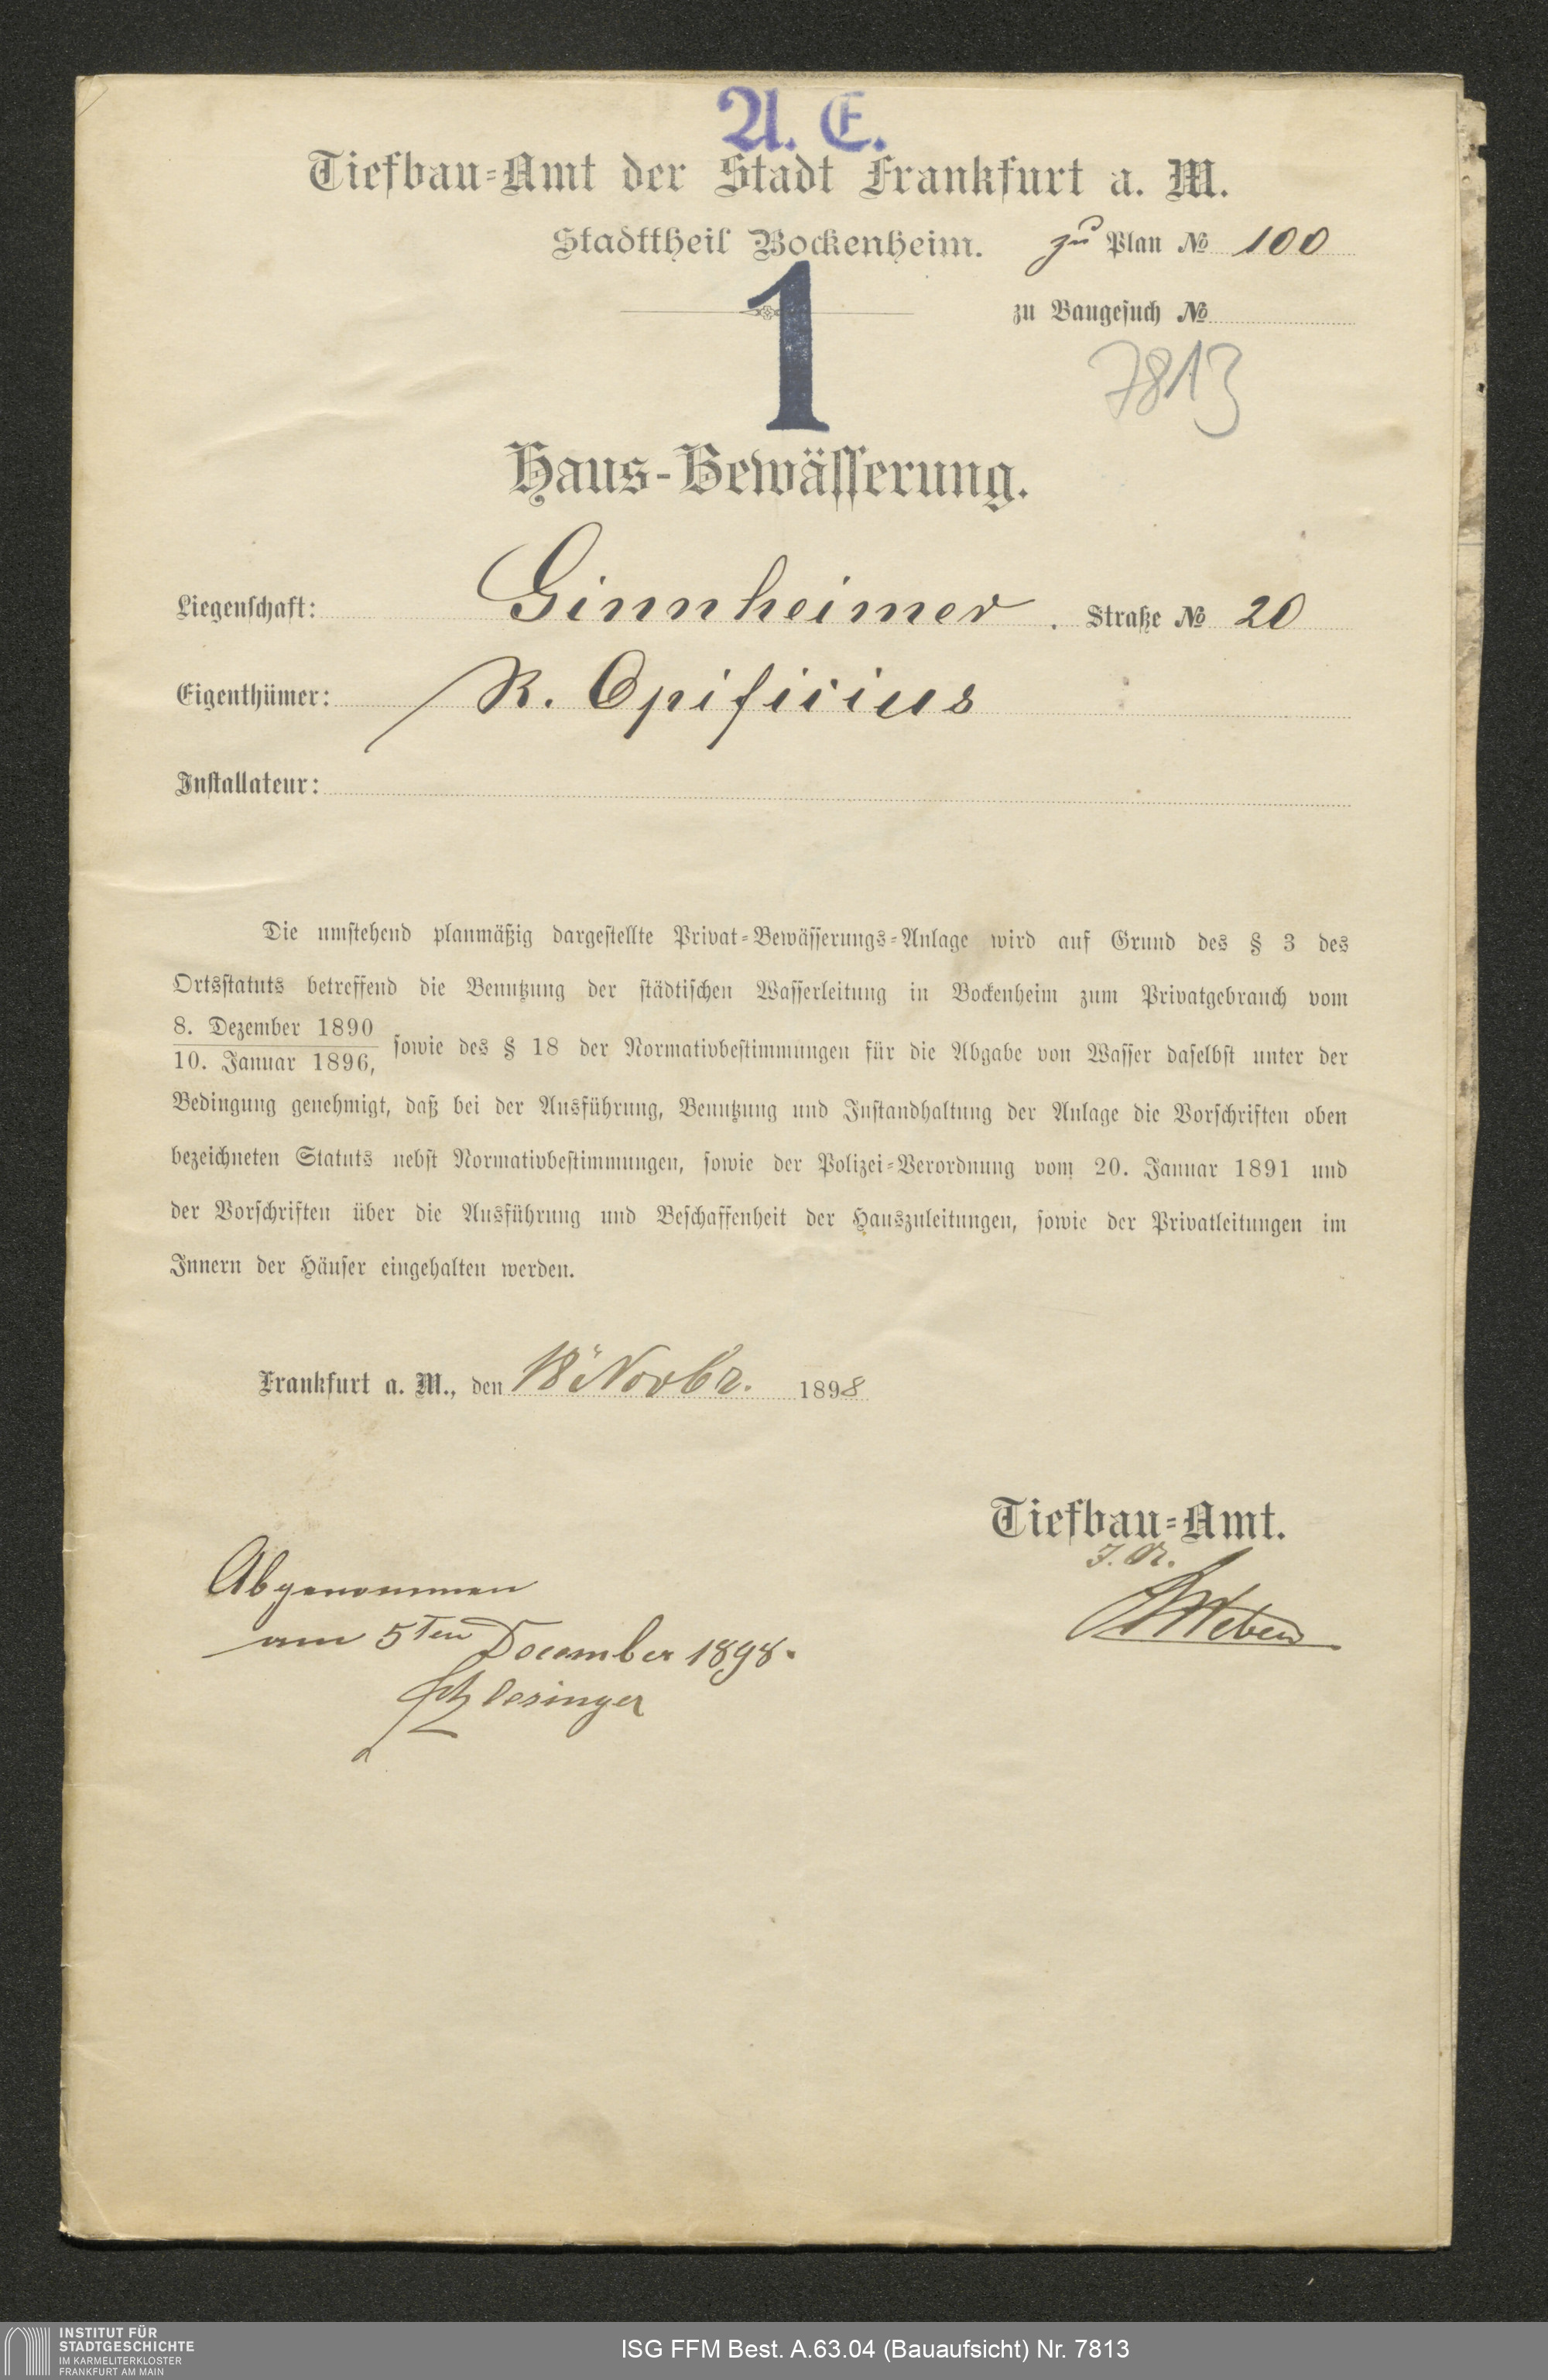 A. E.
Tiefbau=Amt der Stadt Frankfurt a. M.
Stadttheil Bockenheim.
zu Plan № 100
zu Baugesuch №
1
7813
Haus-Bewässerung.
Liegenschaft: Ginnheimer. Straße № 20
Eigenthümer: R. Opificius
Installateur:
Die umstehend planmäßig dargestellte Privat=Bewässerungs=Anlage wird auf Grund des § 3 des
Ortsstatuts betreffend die Benutzung der städtischen Wasserleitung in Bockenheim zum Privatgebrauch vom
8. Dezember 1890
10. Januar 1896, sowie des § 18 der Normativbestimmungen für die Abgabe von Wasser daselbst unter der
Bedingung genehmigt, daß bei der Ausführung, Benutzung und Instandhaltung der Anlage die Vorschriften oben
bezeichneten Statuts nebst Normativbestimmungen, sowie der Polizei=Verordnung vom 20. Januar 1891 und
der Vorschriften über die Ausführung und Beschaffenheit der Hauszuleitungen, sowie der Privatleitungen im
Innern der Häuser eingehalten werden.
Frankfurt a. M., den 18 Novbr. 1898
Tiefbau=Amt.
Abgenommen
am 5ten December 1898.
INSTITUT FÜR
STADTGESCHICHTE
IM KARMELITERKLOSTER
FRANKFURT AM MAIN
ISG FFM Best. A.63.04 (Bauaufsicht) Nr. 7813